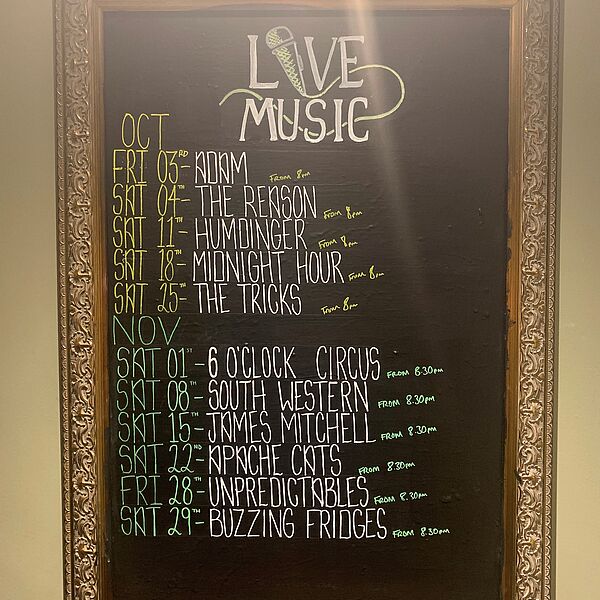 LIVE
MUSIC
OCT
FRI 03RD - ADAM FROM 8pm
SAT 04TH - THE REASON FROM 8pm
SAT 11TH - HUMDINGER FROM 8pm
SAT 18TH - MIDNIGHT HOUR FROM 8pm
SAT 25TH - THE TRICKS FROM 8pm
NOV
SAT 01ST - 6 O'CLOCK CIRCUS FROM 8.30pm
SAT 08TH - SOUTH WESTERN FROM 8.30pm
SAT 15TH - JAMES MITCHELL FROM 8.30pm
SAT 22ND - APACHE CATS FROM 8.30pm
FRI 28TH - UNPREDICTABLES FROM 8.30pm
SAT 29TH - BUZZING FRIDGES FROM 8.30pm